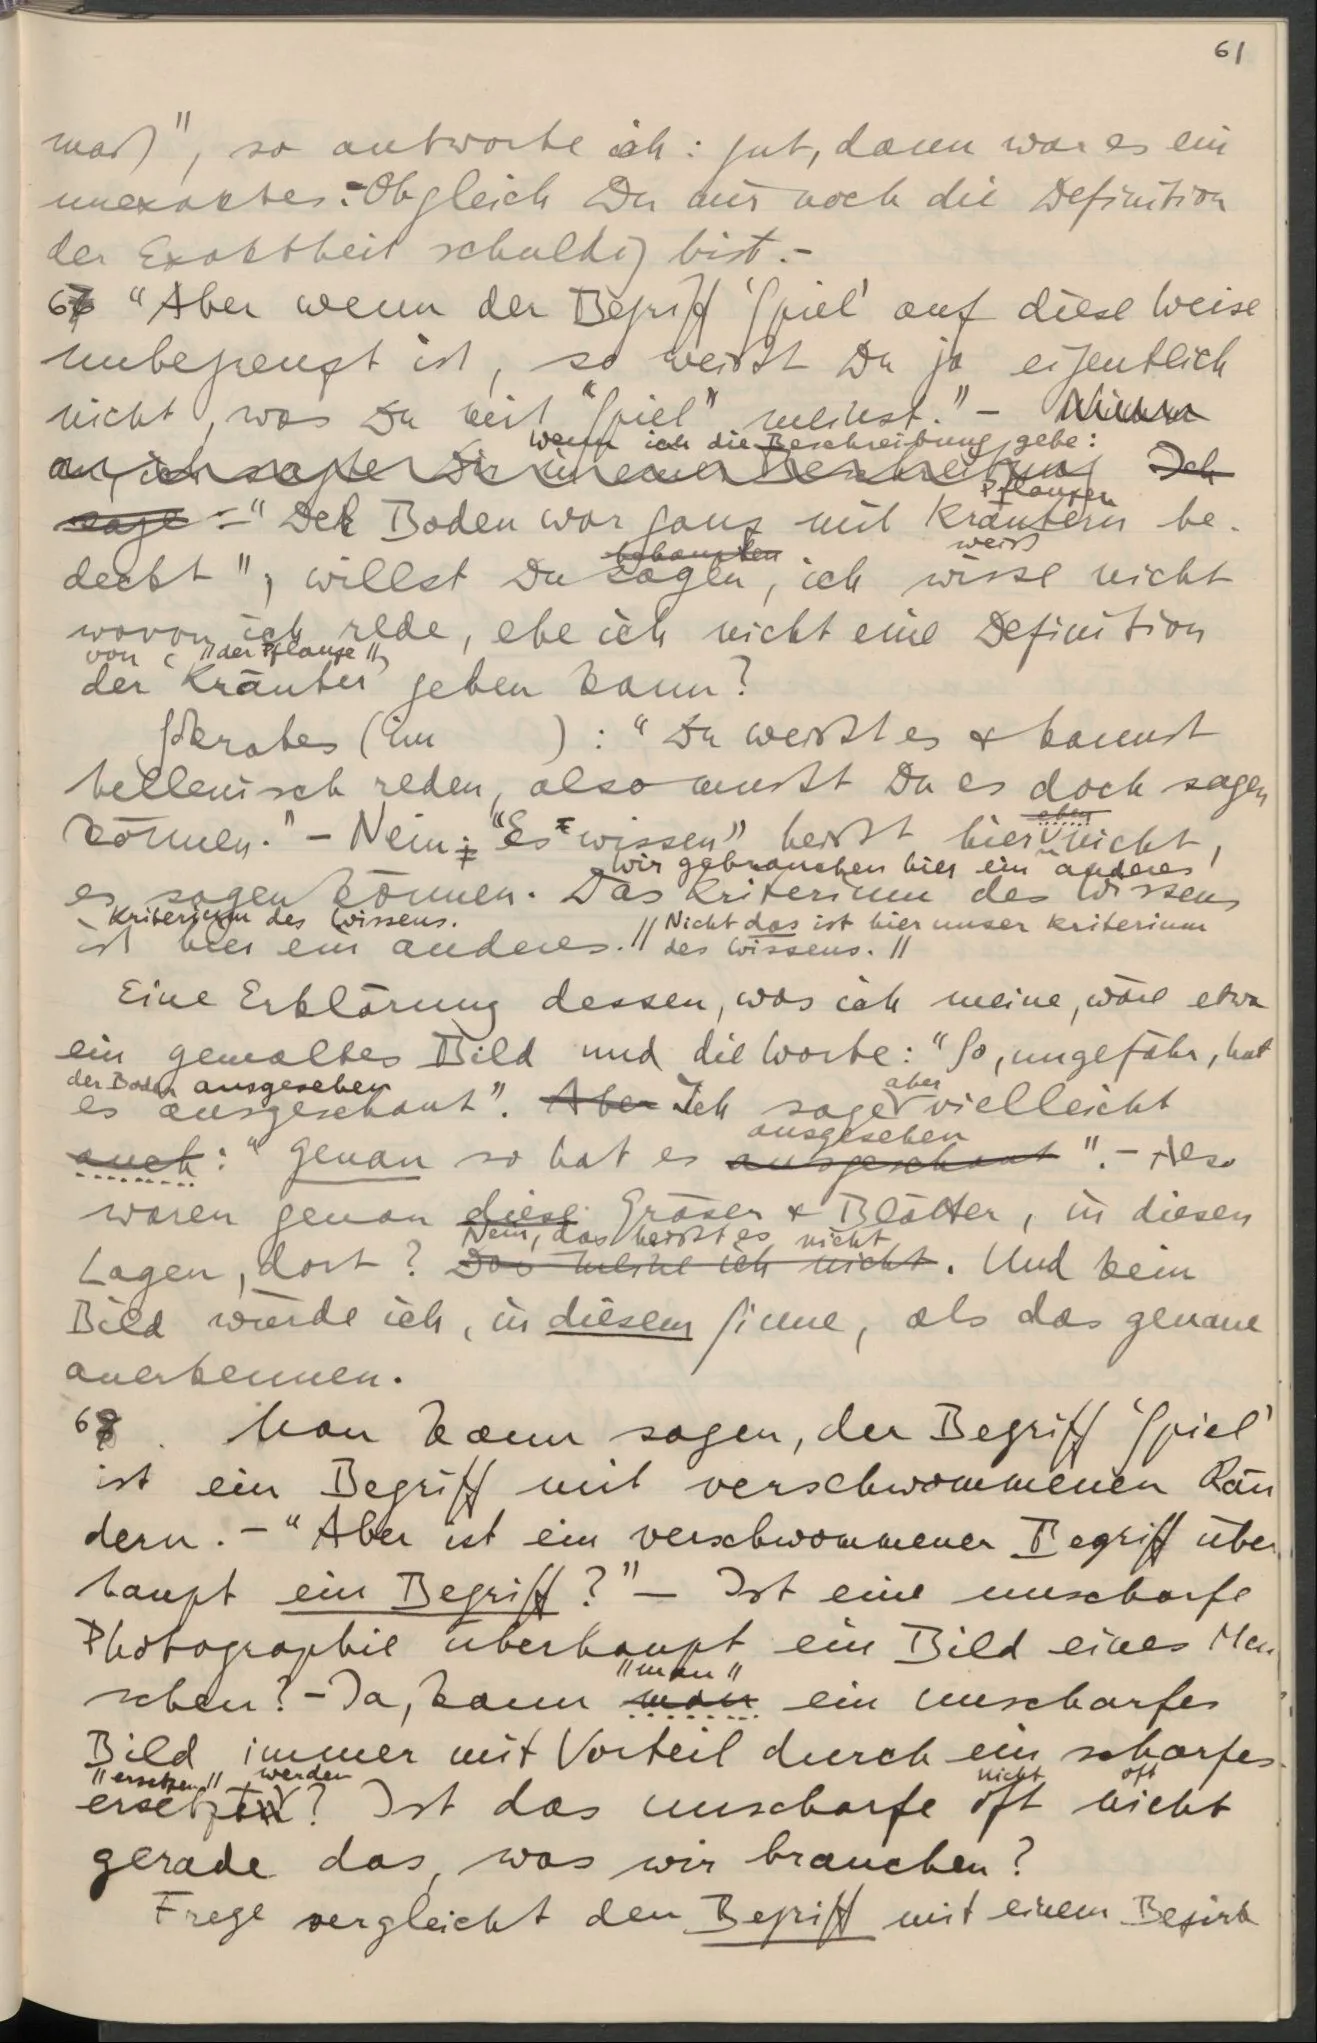 61
maß)", so antworte ich: gut, dann war es ein
unexaktes. – Obgleich Du mir noch die Definition
der Exaktheit schuldig bist. –
67 "Aber wenn der Begriff 'Spiel' auf diese Weise
unbegrenzt ist, so weißt Du ja eigentlich
nicht, was Du mit "Spiel" meinst." – Nimm
wenn ich die Beschreibung gebe:
an, ich sagte Dir in einer Beschreibung Ich
Pflanzen
sage: – "Der Boden war ganz mit Kräutern be-
behaupten weiß
deckt", willst Du sagen, ich wisse nicht
wovon ich rede, ehe ich nicht eine Definition
von "der Pflanze"
der Kräuter geben kann?
Sokrates (im ) : "Du weißt es & kannst
hellenisch reden, also mußt Du es doch sagen
eben
können." – Nein; "Es wissen" heißt hier nicht,
wir gebrauchen hier ein anderes
es sagen können. Das Kriterium des Wissens
Kriterium des Wissens. // Nicht das ist hier unser Kriterium
ist hier ein anderes. des Wissens. //
Eine Erklärung dessen, was ich meine, wäre etwa
ein gemaltes Bild und die Worte: "So, ungefähr, hat
der Boden ausgesehen aber
es ausgeschaut". Aber Ich sage vielleicht
ausgesehen
auch: "Genau so hat es ausgeschaut". – Also
waren genau diese Gräser & Blätter, in diesen
Nein, das heißt es nicht
Lagen, dort? Das meine ich nicht. Und kein
Bild würde ich, in diesem Sinne, als das genaue
anerkennen.
68. Man kann sagen, der Begriff 'Spiel'
ist ein Begriff mit verschwommenen Rän
dern. – "Aber ist ein verschwommener Begriff über
haupt ein Begriff?" – Ist eine unscharfe
Photographie überhaupt ein Bild eines Men
"man"
schen? – Ja, kann man ein unscharfes
Bild immer mit Vorteil durch ein scharfes
"ersetzen" werden nicht oft
ersetzen? Ist das unscharfe oft nicht
gerade das, was wir brauchen?
Frege vergleicht den Begriff mit einem Bezirk